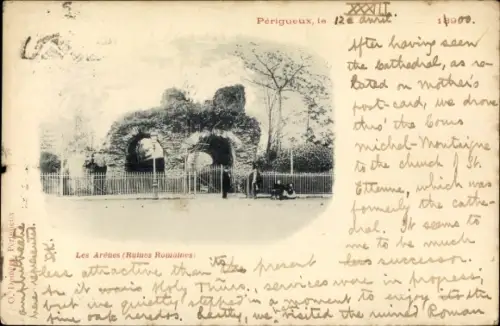 XXXII
Périgueux, le 12 avril, 1900.
After having seen
the Cathedral, as re-
lated on mother's
post-card, we drove
thro' the Cours
Michel-Montaigne
to the church of St.
Etienne, which was
formerly the cathe-
dral. It seems to
me to be much
Les Arènes (Ruines Romaines)
less attractive than its present less successor.
As it was Holy Thurs., services were in progress,
but we quietly stepped in a moment to enjoy its
fine oak reredos. Lastly, we visited the ruined Roman
amphitheatre
here represented.